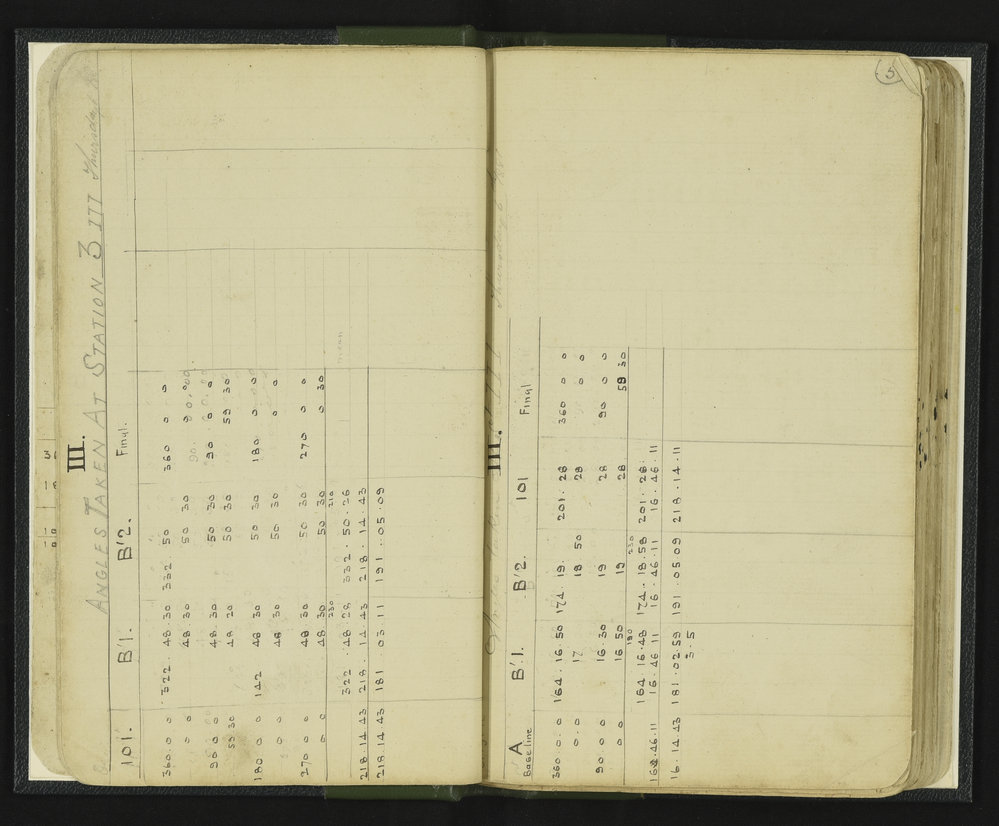 III.
ANGLES TAKEN AT STATION 3 III Thursday
101. B'1. B'2. Final.
360. 0. 0 322. 48. 30 332. 50 360 0 0
0 0 48. 30 50 30
90 0 0 48. 30 50 30 90 0 0
59 30 48 20 50 30 59 30
180 0 0 142 48 30 50 30 180 0 0
0 0 48 30 50 30 0 0
270 0 0 48. 30 50 30 270 0 0
0 0 48 30 50 30 0 30
230 210
322. 48. 28 332. 50. 26 mean
218 14 43 218. 14. 43 218. 14. 43
218 14 43 181 03 11 191. 05. 09
5
III.
A B'1. B'2. 101 Final
Base line
360 0. 0 164. 16. 50 174 19. 201. 28 360 0 0
0. 0 17 18 50 28 0 0
90 0 0 16. 30 19 28 90 0 0
0 0 16 50 19 28 59 30
190 230
164. 16. 48 174. 18. 58 201. 28.
16. 46. 11 16. 46. 11 16. 46. 11
16. 14 43 181. 02. 59 191. 05 09 218. 14. 11
3. 5